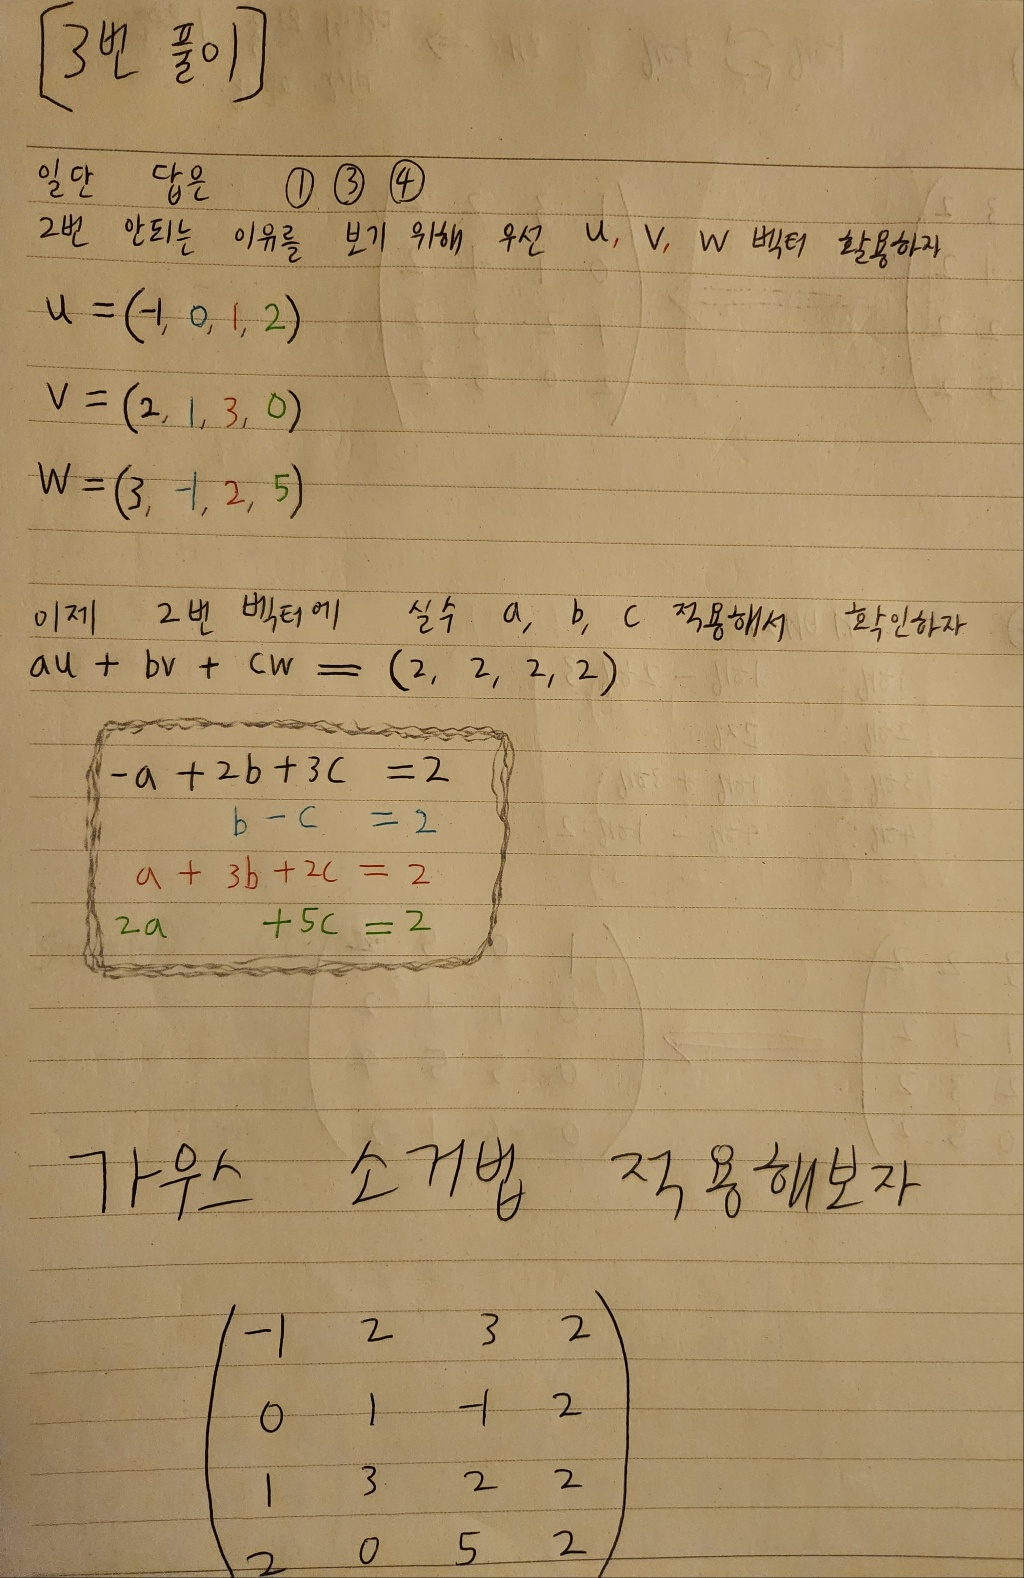 [3번 풀이]
일단 답은 ① ③ ④
2번 안되는 이유를 보기 위해 우선 u, v, w 벡터 활용하자
u = (-1, 0, 1, 2)
v = (2, 1, 3, 0)
w = (3, -1, 2, 5)
이제 2번 벡터에 실수 a, b, c 적용해서 확인하자
au + bv + cw = (2, 2, 2, 2)
-a + 2b + 3c = 2
b - c = 2
a + 3b + 2c = 2
2a + 5c = 2
가우스 소거법 적용해보자
-1 2 3 2
0 1 -1 2
1 3 2 2
2 0 5 2